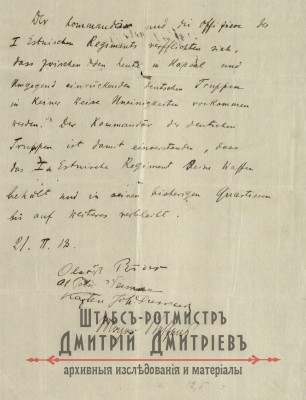 Der Kommandör und die Offiziere des
I Estnischen Regiments verpflichten sich,
dass zwischen den heute in Hapsal und
Umgegend einrückenden deutschen Truppen
in Keiner Keine Uneinigkeiten vorkommen
werden. Der Kommandör der deutschen
Truppen ist damit einverstanden, dass
das I Estnische Regiment seine Waffen
behält und in seinen bisherigen Quartieren
bis auf weiteres verbleibt.
21. II. 18.
ШТАБСЪ-РОТМИСТРЪ
ДМИТРІЙ ДМИТРІЕВЪ
архивныя изслѣдованія и матеріалы